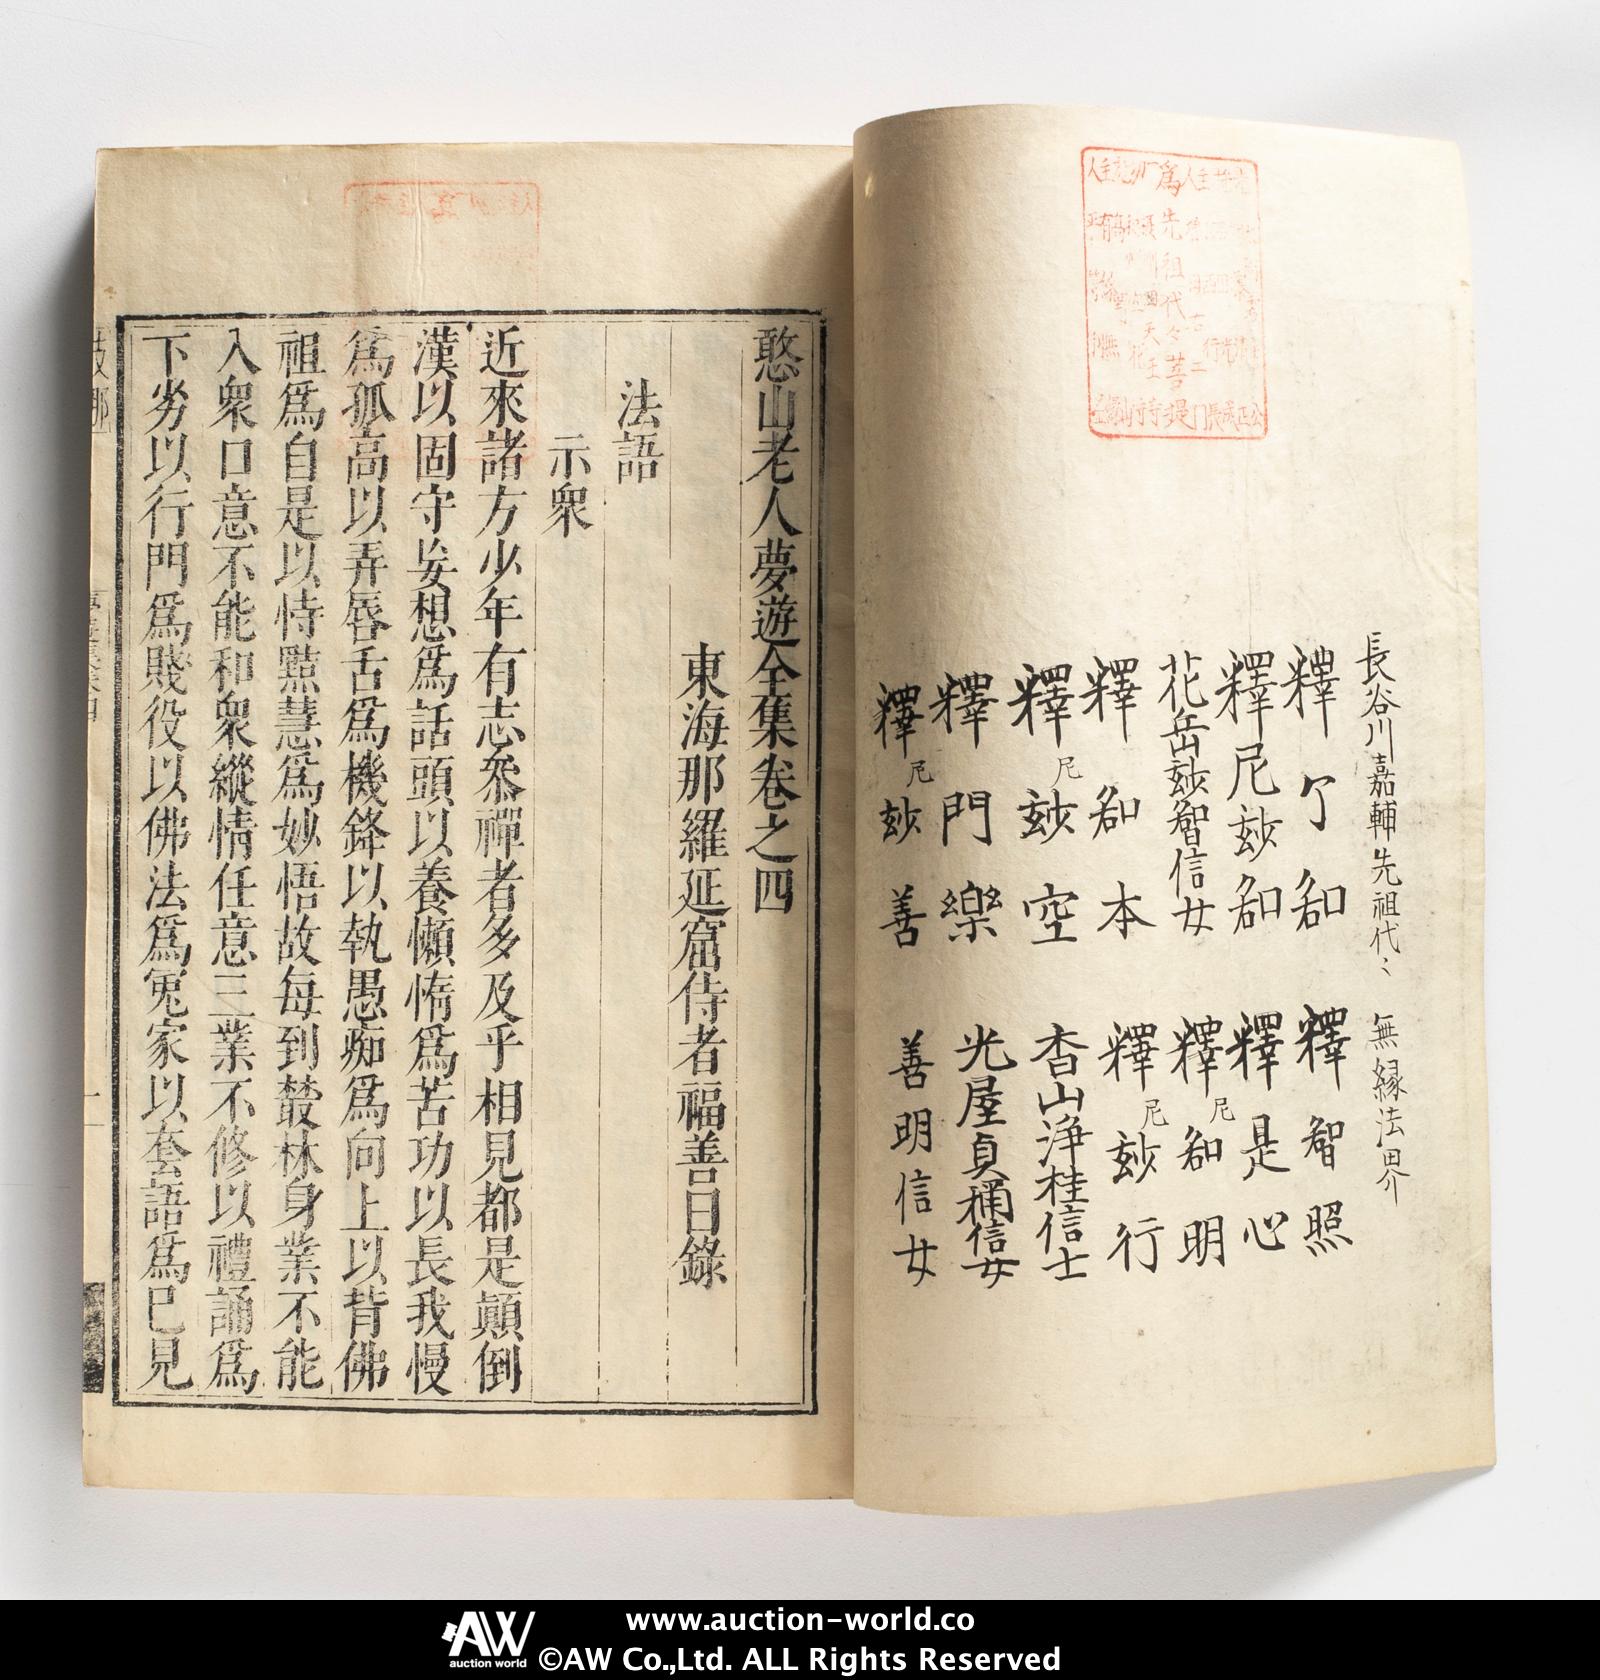 長谷川嘉輔先祖代々 無縁法界
釋了知 釋智照
釋尼玅知 釋是心
花岳玅智信女 釋尼知明
釋知本 釋尼玅行
釋尼玅空 杳山浄桂信士
釋門樂 光屋貞稱信女
釋尼玅善 善明信女
憨山老人夢遊全集卷之四
東海那羅延窟侍者福善日錄
法語
示衆
近來諸方少年有志叅禪者多及乎相見都是顚倒
漢以固守妄想爲話頭以養懶惰爲苦功以長我慢
爲孤高以弄唇舌爲機鋒以執愚痴爲向上以背佛
祖爲自是以恃黠慧爲妙悟故每到叢林身業不能
入衆口意不能和衆縱情任意三業不修以禮誦爲
下劣以行門爲賤役以佛法爲冤家以套語爲已見
爲先祖代々菩提
AW
auction world
www.auction-world.co
©AW Co.,Ltd. ALL Rights Reserved